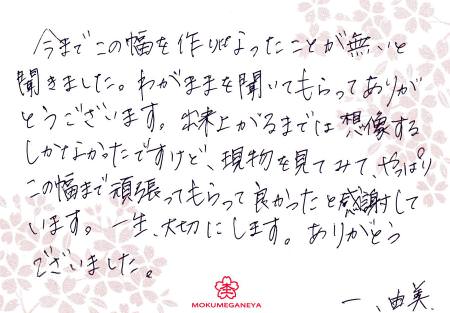 今までこの幅を作りなったことが無いと
聞きました。わがままを聞いてもらってありが
とうございます。出来上がるまでは想像する
しかなかったですけど、現物を見てみて、やっぱり
この幅まで頑張ってもらって良かったと感謝して
います。一生、大切にします。ありがとう
ございました。
MOKUMEGANEYA
由美